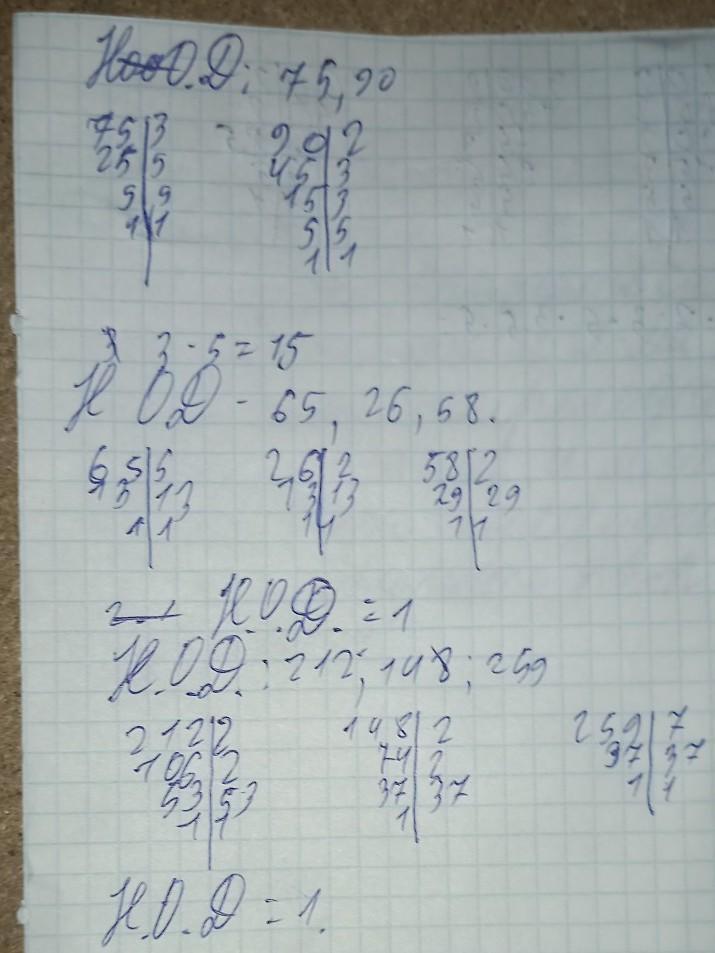 Н.О.Д: 75, 90
75|3 90|2
25|5 45|3
5|5 15|3
1|1 5|5
1|1
3 · 5 = 15
НОД - 65, 26, 58.
65|5 26|2 58|2
13|13 13|13 29|29
1|1 1|1 1|1
Н.О.Д. = 1
Н.О.Д.: 212; 148; 259
212|2 148|2 259|7
106|2 74|2 37|37
53|53 37|37 1|1
1|1 1|
Н.О.Д = 1.